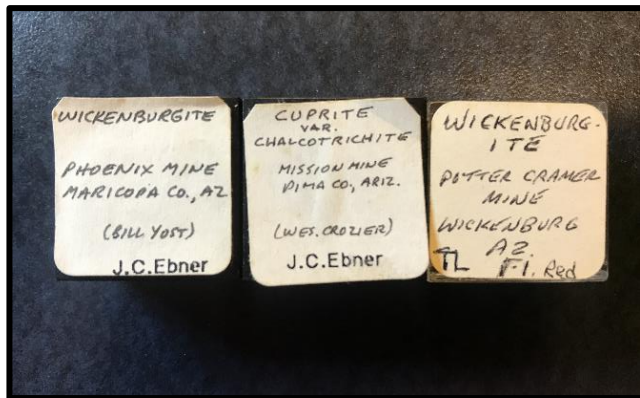 WICKENBURGITE
PHOENIX MINE
MARICOPA CO., AZ
(BILL YOST)
J.C.Ebner
CUPRITE
VAR.
CHALCOTRICHITE
MISSION MINE
PIMA CO., ARIZ.
(WES. CROZIER)
J.C.Ebner
WICKENBURG-
ITE
POTTER CRAMER
MINE
WICKENBURG
AZ.
TL Fl. Red